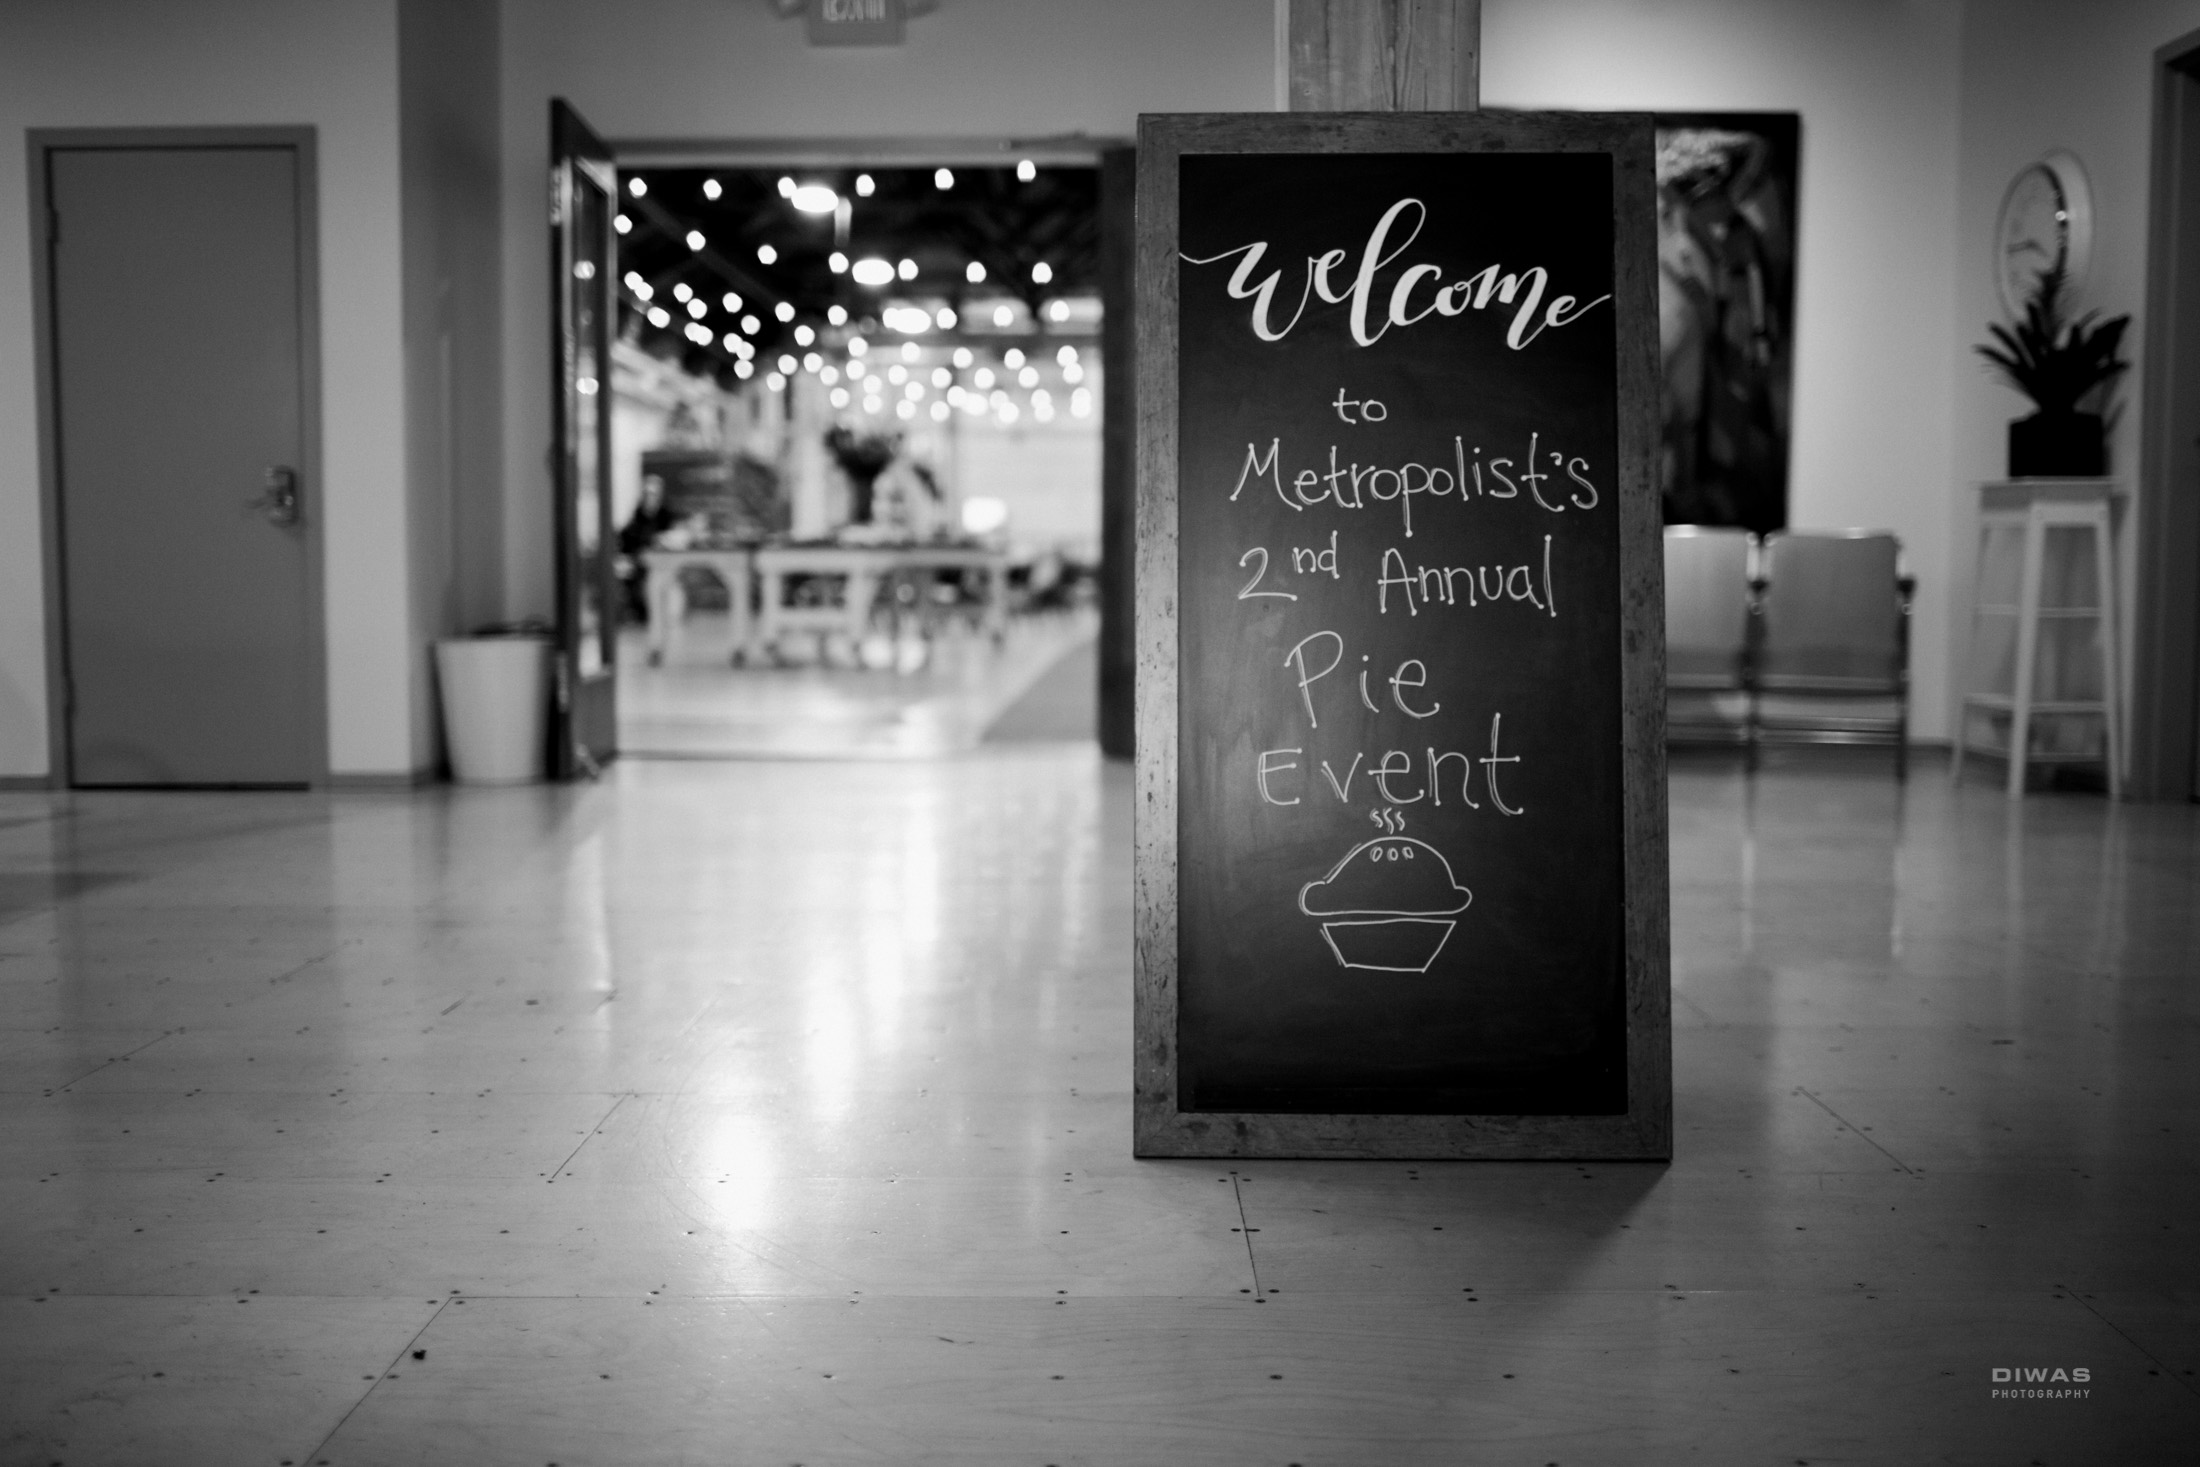 welcome
to
Metropolist's
2nd Annual
Pie
Event
DIWAS
PHOTOGRAPHY